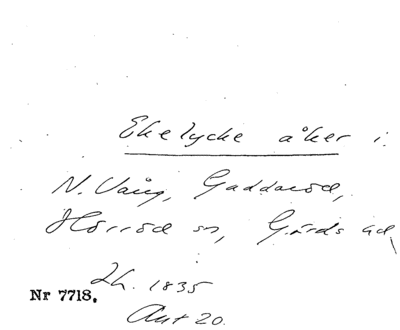 Ekelycke åker i
N. Vång, Gaddaröd,
Hörröd sn, Gärds hd,
Lh. 1835
Nr 7718.
Akt 20.